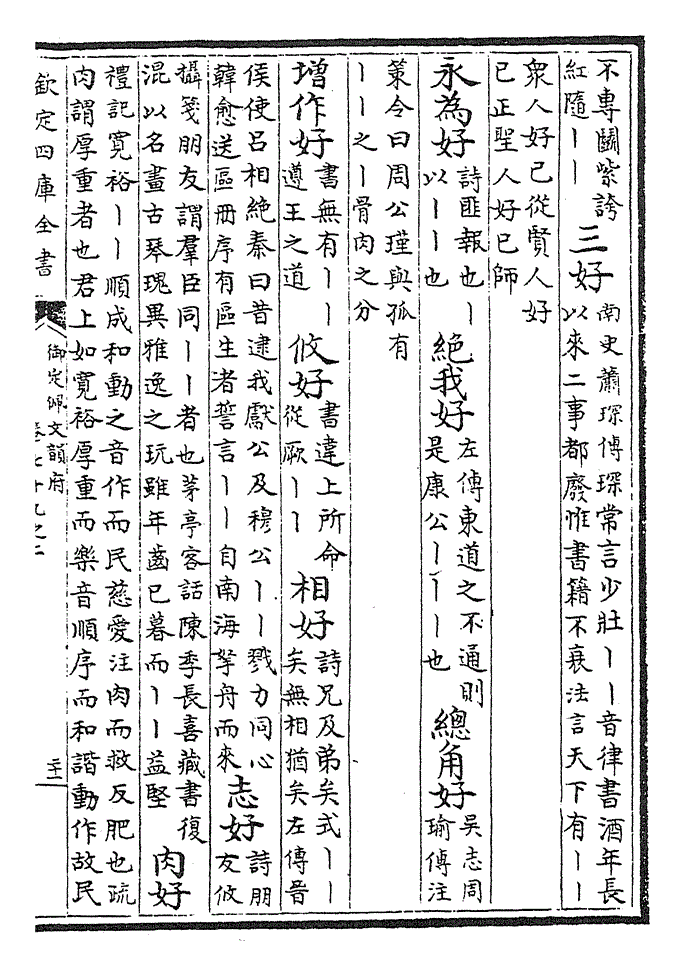 不專鬬紫誇
紅隨丨丨
三好
南史蕭琛傳琛常言少壯丨丨音律書酒年長
以來二事都廢惟書籍不衰法言天下有丨丨
衆人好己從賢人好
己正聖人好己師
永為好
詩匪報也丨
以丨丨也
絕我好
左傳東道之不通則
是康公丨丨丨也
總角好
吳志周
瑜傳注
策令曰周公瑾與孤有
丨丨之丨骨肉之分
增作好
書無有丨丨
遵王之道
攸好
書違上所命
從厥丨丨
相好
詩兄及弟矣式丨丨
矣無相猶矣左傳晉
侯使呂相絕秦曰昔逮我獻公及穆公丨丨戮力同心
韓愈送區冊序有區生者誓言丨丨自南海挐舟而來
志好
詩朋
友攸
攝箋朋友謂羣臣同丨丨者也茅亭客話陳季長喜藏書復
混以名畫古琴瑰異雅逸之玩雖年齒已暮而丨丨益堅
肉好
禮記寬裕丨丨順成和動之音作而民慈愛注肉而救反肥也疏
肉謂厚重者也君上如寬裕厚重而樂音順序而和諧動作故民
欽定四庫全書
御定佩文韻府
卷七十九之二